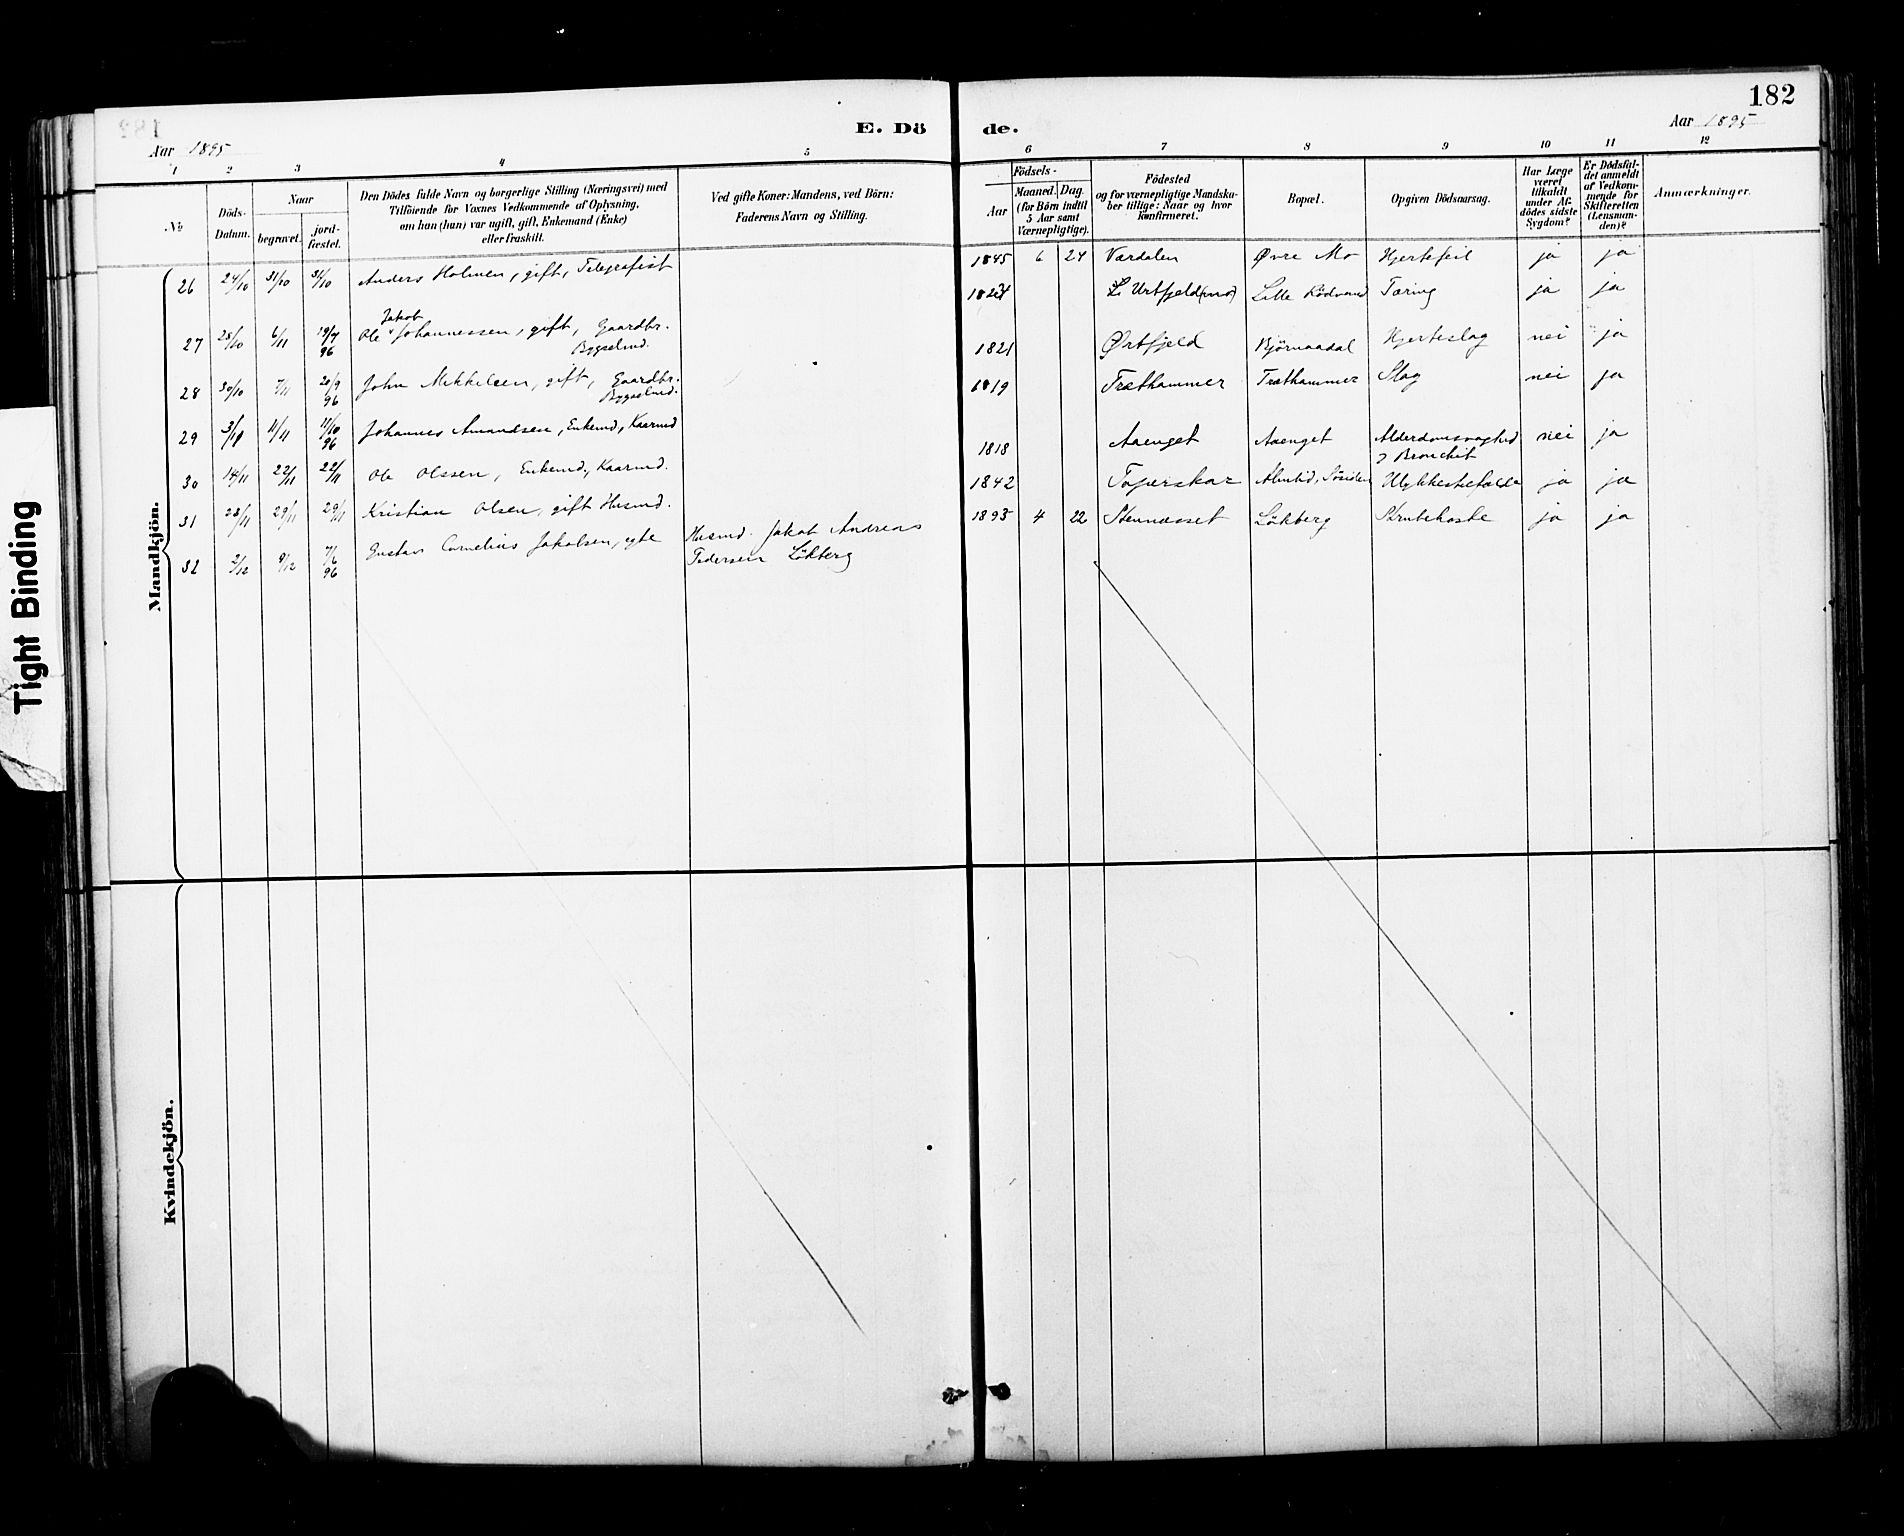 182
E. Dö de.
Aar 1895
Aar 1895
1 2 3 4 5 6 7 8 9 10 11 12
№
Döds-Datum.
Naar
begravet.
jord-fæstet.
Den Dödes fulde Navn og borgerlige Stilling (Næringsvei) med
Tilföiende for Voxnes Vedkommende af Oplysning,
om han (hun) var ugift, gift, Enkemand (Enke)
eller fraskilt.
Ved gifte Koner: Mandens, ved Börn:
Faderens Navn og Stilling.
Födsels-
Aar
Maaned. Dag.
(for Börn indtil
5 Aar samt
Værnepligtige).
Födested
og for værnepligtige Mandska-
ber tillige: Naar og hvor
konfirmeret.
Bopæl.
Opgiven Dödsaarsag.
Har Læge
været
tilkaldt
under Af-
dödes sidste
Sygdom?
Er Dödsfal-
det anmeldt
af Vedkom-
mende for
Skifteretten
(Lensman-
den)?
Anmærkninger.
Mandkjön.
26 24/10 31/10 31/10 Anders Holmen, gift, Telegrafist 1845 6 24 Værdalen Øvre Mo Hjertefeil ja ja
27 28/10 6/11 19/7 96 Ole Jakob Johannessen, gift, Gaardbr. Bygselmd. L. Urtfjeld (mo) Lille Rödvand Tæring ja ja
28 30/10 7/11 20/9 96 John Mikkelsen, gift, Gaardbr. Bygselmd. 1821 Ørtfjeld Bjørnaadal Hjerteslag nei ja
29 11/11 11/10 96 Johannes Amundsen, Enkemd, Kaarmd 1819 Træthammer Træthammer Slag nei ja
30 14/11 22/11 22/11 Ole Olssen, Enkemd, Kaarmd. 1818 Aaenget Aaenget Alderdomssvaghed
& Bronchit nei ja
31 23/11 29/11 29/11 Kristian Olsen, gift Husmd. 1842 Ulykkestilfælde ja ja
32 2/12 9/12 7/6 96 Gustav Cornelius Jakobsen, egte Husmd. Jakob Andreas
Pedersen Lökberg 1895 4 22 Stennesset Lökberg Strubehoste ja ja
Kvindekjön.
Tight Binding